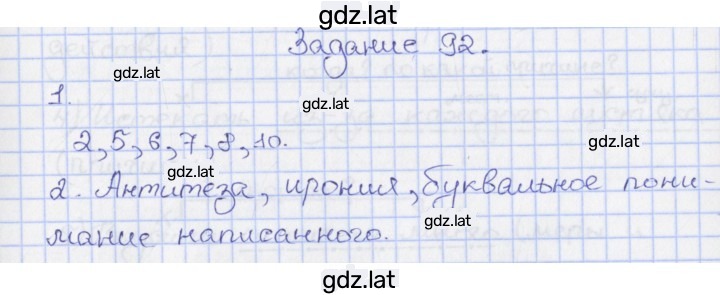 gdz.lat
Задание 92.
gdz.lat
gdz.lat
1.
2, 5, 6, 7, 8, 10.
gdz.lat
gdz.lat
2. Антитеза, ирония, буквальное пони-
gdz.lat
мание написанного.
gdz.lat